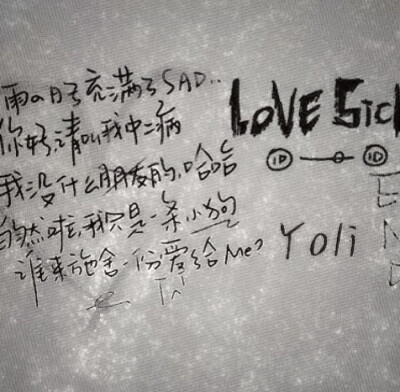 雨の日子充满了SAD..
你好,请叫我中二病
我没什么朋友的,哈哈
自然啦,我只是一条小狗
谁来施舍一份爱给Me?
LOVE SICK
ID ID
Yoli
END